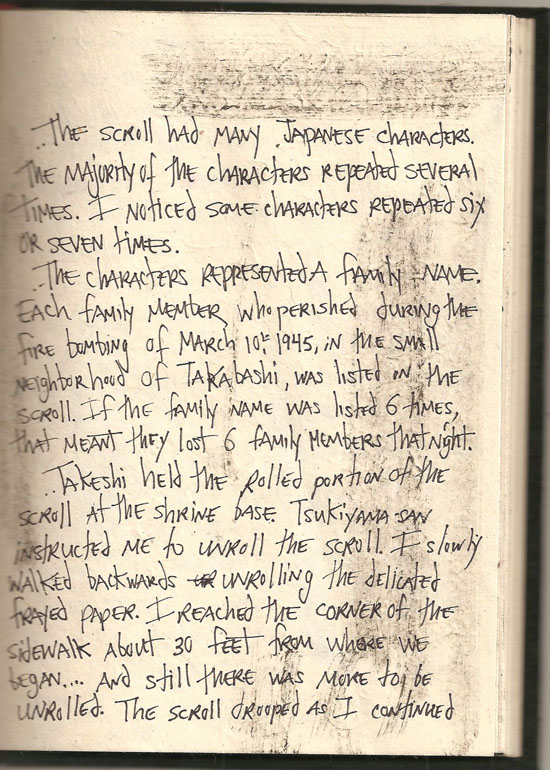 ..The scroll had many Japanese characters.
The majority of the characters repeated several
times. I noticed some characters repeated six
or seven times.
..The characters represented a family name.
Each family member who perished during the
fire bombing of March 10th 1945, in the small
neighborhood of Takabashi, was listed on the
scroll. If the family name was listed 6 times,
that meant they lost 6 family members that night.
..Takeshi held the rolled portion of the
scroll at the shrine base. Tsukiyama-san
instructed me to unroll the scroll. I slowly
walked backwards unrolling the delicated
frayed paper. I reached the corner of the
sidewalk about 30 feet from where we
began.... And still there was more to be
unrolled. The scroll drooped as I continued